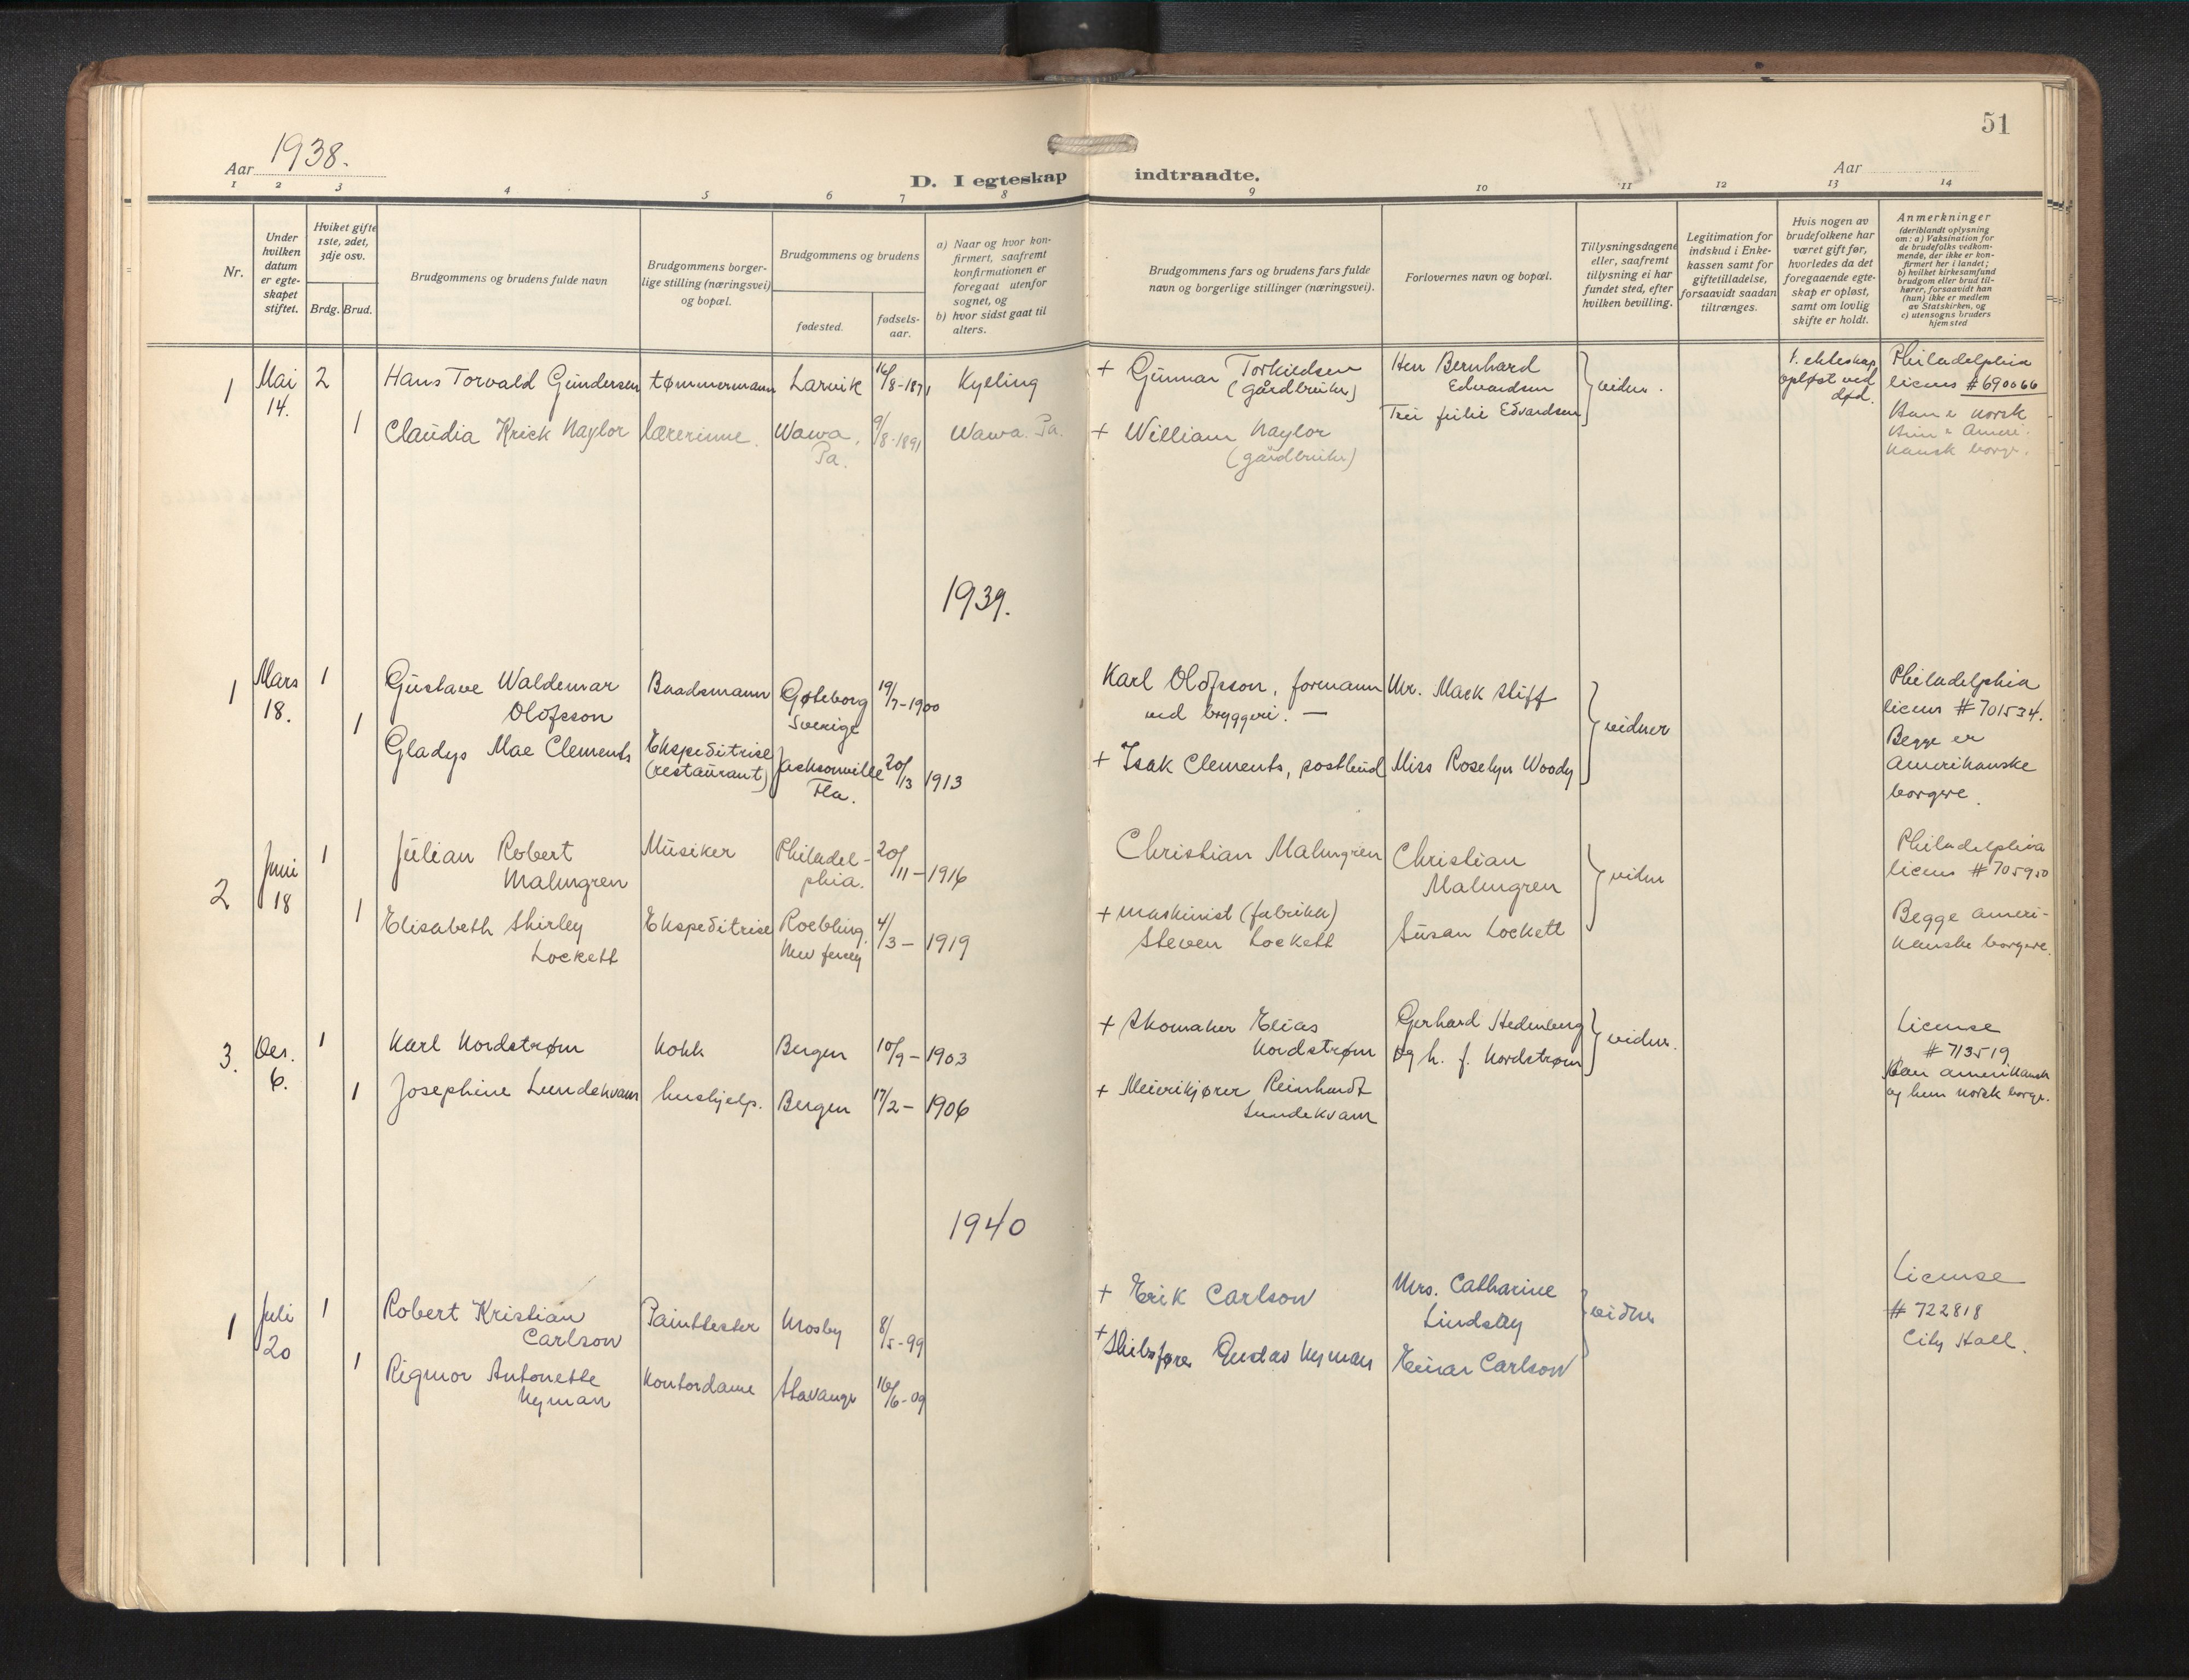 51
Aar 1938.
D. I egteskap indtraadte.
Aar
1 2 3 4 5 6 7 8 9 10 11 12 13 14
Nr.
Under
hvilken
datum
er egte-
skapet
stiftet.
Hviket gifte
1ste, 2det,
3dje osv.
Brdg. Brud.
Brudgommens og brudens fulde navn
Brudgommens borger-
lige stilling (næringsvei)
og bopæl.
Brudgommens og brudens
fødested.
fødsels-
aar.
a) Naar og hvor kon-
firmert, saafremt
konfirmationen er
foregaat utenfor
sognet, og
b) hvor sidst gaat til
alters.
Brudgommens fars og brudens fars fulde
navn og borgerlige stillinger (næringsvei).
Forlovernes navn og bopæl.
Tillysningsdagene
eller, saafremt
tillysning ei har
fundet sted, efter
hvilken bevilling.
Legitimation for
indskud i Enke-
kassen samt for
giftetilladelse,
forsaavidt saadan
tiltrænges.
Hvis nogen av
brudefolkene har
været gift før,
hvorledes da det
foregaaende egte-
skap er opløst,
samt om lovlig
skifte er holdt.
Anmerkninger
(deriblandt oplysning
om: a) Vaksination for
de brudefolks vedkom-
mende, der ikke er kon-
firmert her i landet;
b) hvilket kirkesamfund
brudgom eller brud til-
hører, forsaavidt han
(hun) ikke er medlem
av Statskirken, og
c) utensogns bruders
hjemsted
1
Mai
14.
2
Hans Torvald Gundersen
tømmermann
Larvik
16/8-1871
Kyelling
+ Gunnar Torkildsen
(gårdbruker)
Herr Bernhard
Edvardsen
Edvardsen
vidner.
1. ekteskap
opløst ved
død.
Philadelphia
licens #690066
Han er norsk
Hun er Ameri-
kansk borger.
1
Claudia Krick Naylor
lærerinne.
Wawa,
Pa.
9/8-1891
Wawa. Pa.
+ William Naylor
(gårdbruker)
1939.
1
Mars
18.
1
Gustave Waldemar
Olofsson
Baadsmann
Gøteborg
Sverige
19/7-1900
Karl Olofsson, formann
ved bryggeri. —
Mr. Mack Stiff
vidner
Philadelphia
licens #701534.
Begge er
Amerikanske
borgere.
1
Gladys Mae Clements
Ekspeditrise
(restaurant)
Jacksonville
Fla.
20/13 1913
+ Isak Clements, postbud
Miss Roselyn Woody
2
Juni
18
1
Julian Robert
Malmgren
Musiker
Philadel-
phia.
20/11-1916
Christian Malmgren
Christian
Malmgren
vidner
Philadelphia
licens #705950
Begge ameri-
kanske borgere.
1
Elisabeth Shirley
Lockett
Ekspeditrise
Roebling
New Jersey
4/3-1919
+ maskinist (fabrikk)
Steven Lockett
Susan Lockett
3.
Des.
6.
1
Karl Nordstrøm
Kokk
Bergen
10/9-1903
+ Skomaker Elias
Nordstrøm
Gerhard Hedenberg
og h. f. Nordstrøm
vidner.
License
#713519
Han amerikansk
og hun norsk borger.
1
Josephine Lundekvam
hushjelp.
Bergen
17/2-1906
+ Meierikjører Reinhardt
Lundekvam
1940
1
Juli
20
1
Robert Kristian
Carlson
Painttester
Mosby
8/5-99
+ Erik Carlson
Mrs. Catharine
Lindsay
vidner
License
#722818
City Hall.
1
Rigmor Antonette
Nyman
Kontordame
Stavanger
16/6-09
+ Skibsfører Gustav Nyman
Einar Carlson